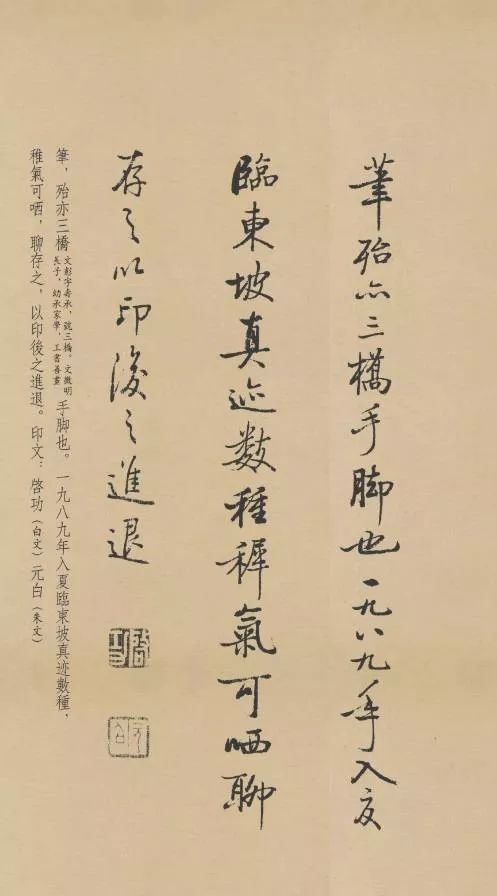 筆殆亦三橋手脚也一九八九年入夏
臨東坡真迹数種穉氣可哂聊
存之以印後之進退
啓功
元白
筆，殆亦三橋文彭字壽承，號三橋。文徵明長子，幼承家學，工書善畫手脚也。一九八九年入夏臨東坡真迹數種，
稚氣可哂，聊存之，以印後之進退。印文：啓功（白文）元白（朱文）